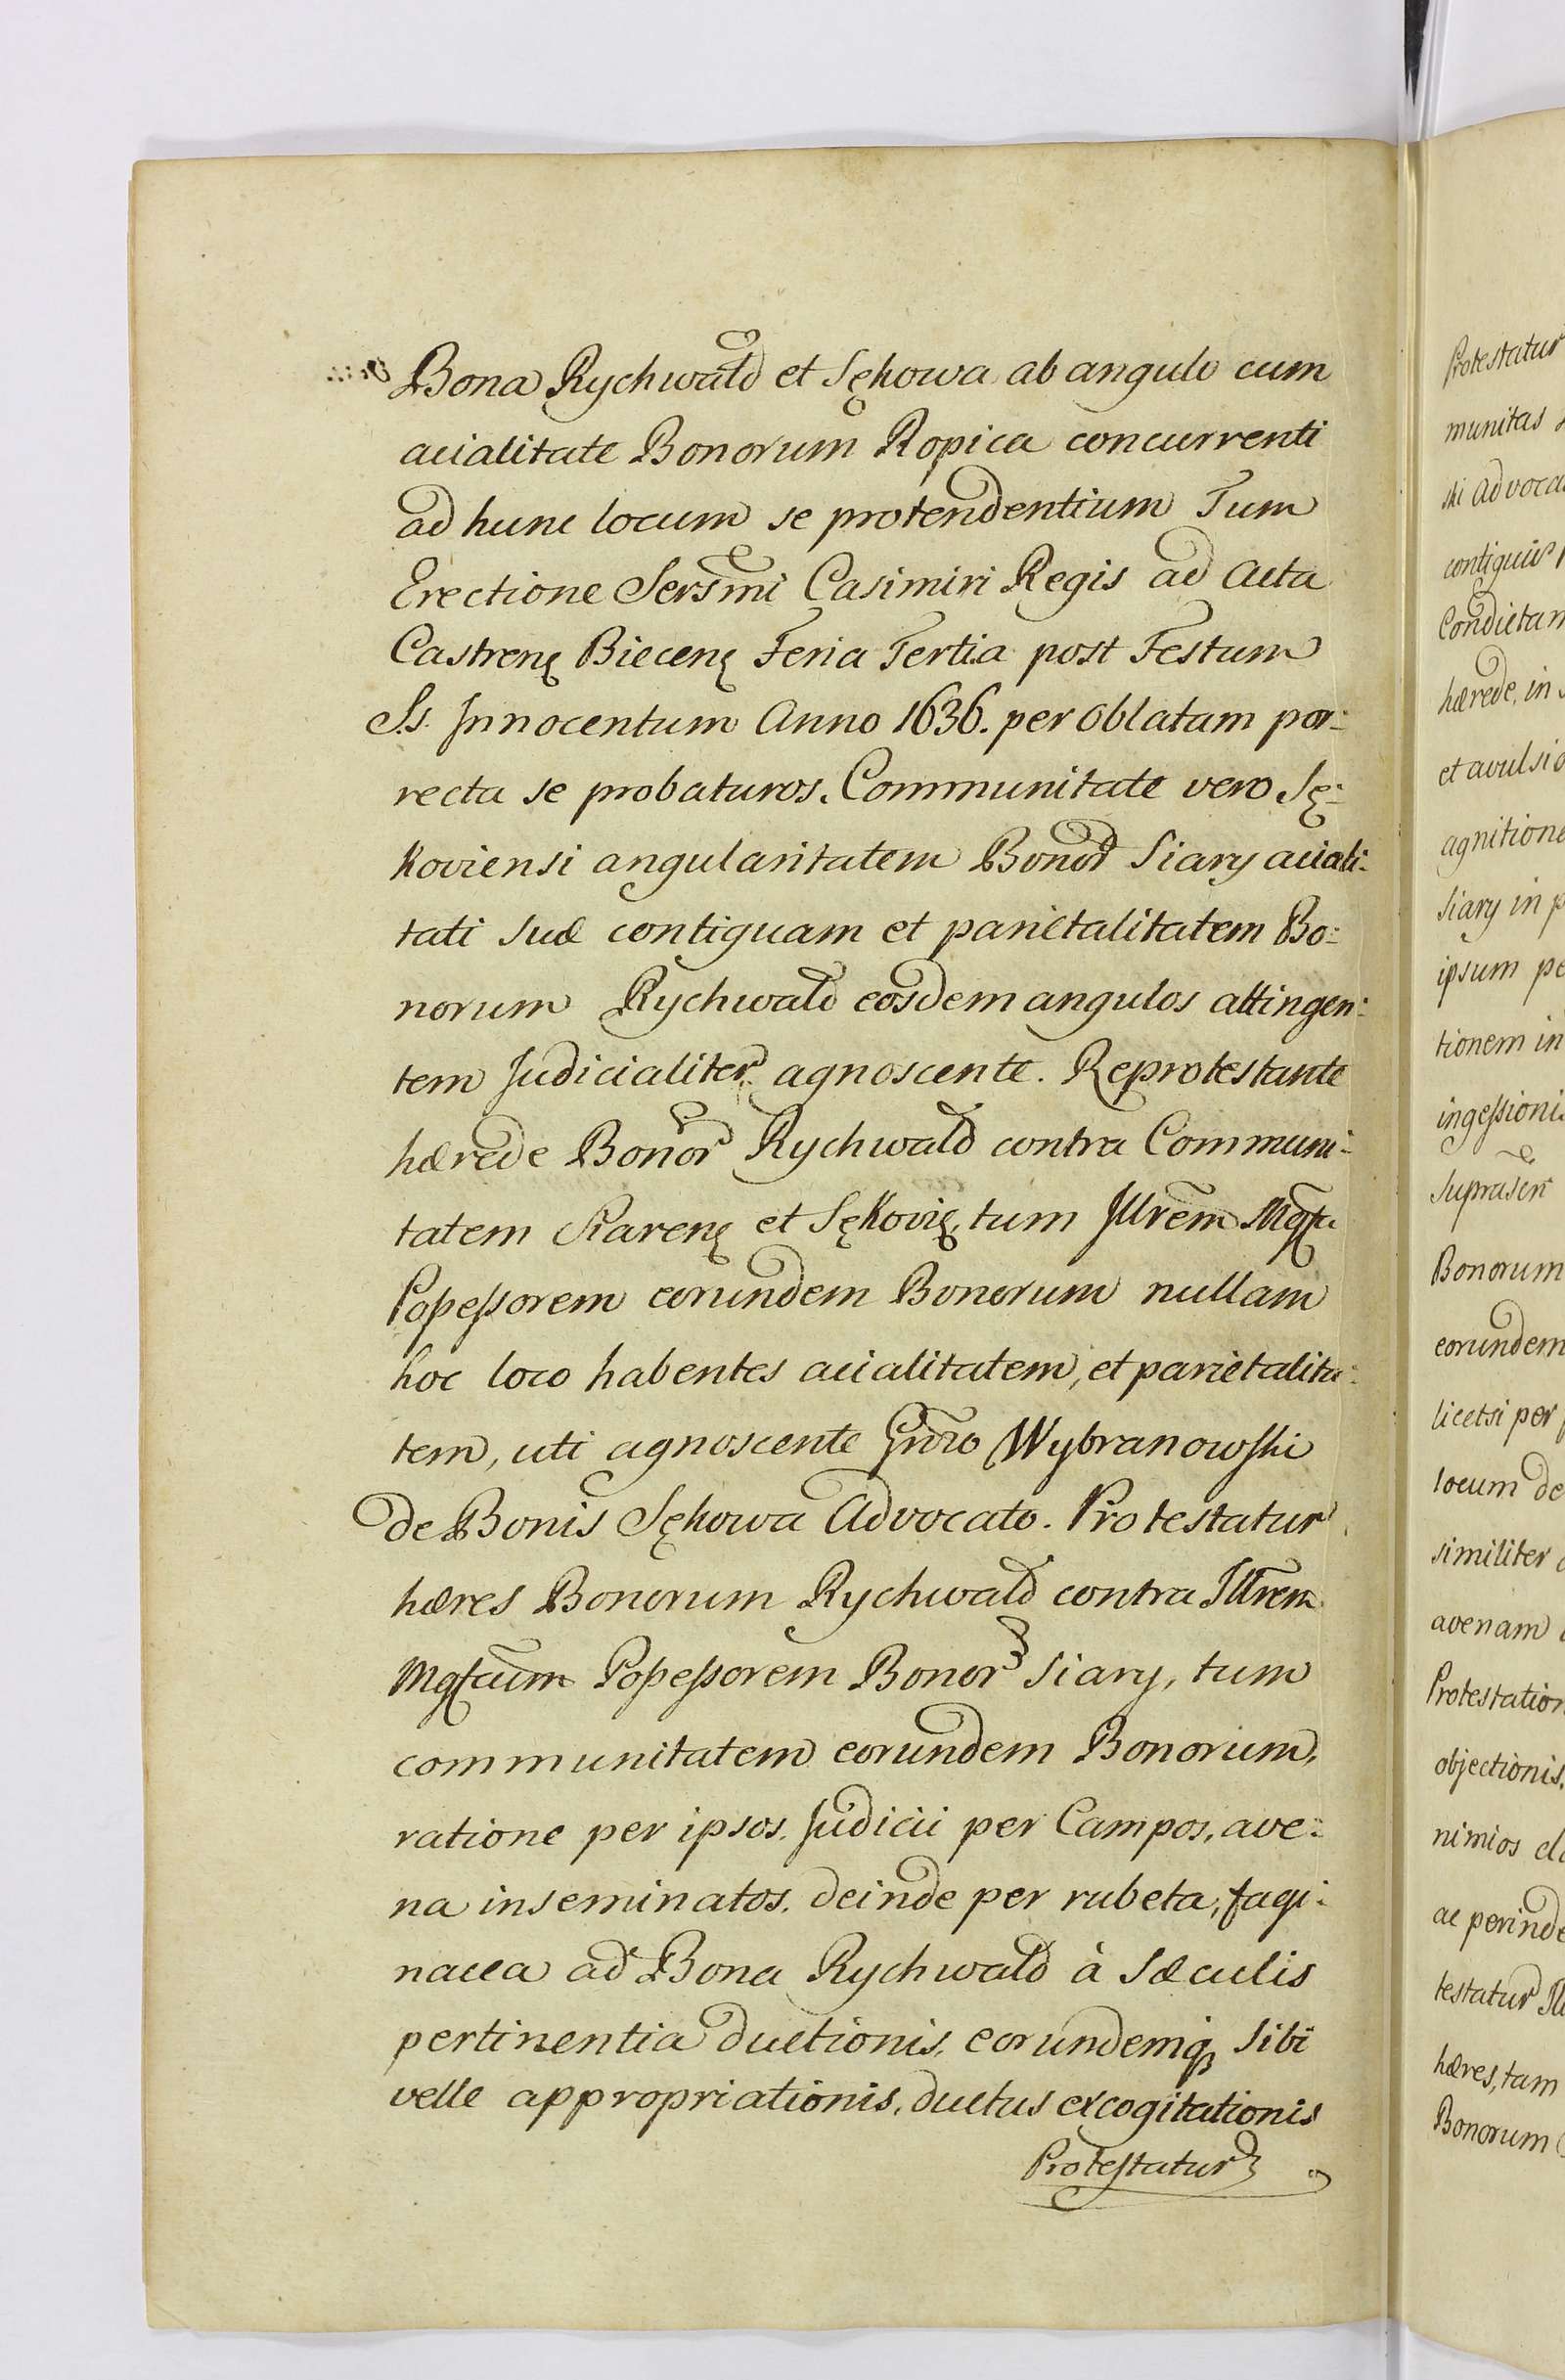 Bona Rychwald et Sękowa ab angulo cum
acialitate Bonorum Ropica concurrenti
ad hunc locum se protendentium Tum
Erectione Sersmi Casimiri Regis ad Acta
Castrenę Biecenę Feria Tertia post Festum
S.s. Innocentum Anno 1636. per oblatam por:
recta se probaturos. Communitate vero Sę:
koviensi angularitatem Bonor Siary aciali:
tati suæ contiguam et parietalitatem Bo:
norum Rychwald eosdem angulos attingen:
tem Judicialiter agnoscente. Reprotestante
hærede Bonor Rychwald contra Communi:
tatem Siarenę et Sękovię, tum Jllrem Mgfcu
Poßeßorem eorundem Bonorum nullam
hoc loco habentes acialitatem, et parietalita:
tem, uti agnoscente Gnroso Wybranowski
de Bonis Sękowa Advocato. Protestatur
hæres Bonorum Rychwald contra Jllrem
Mgfcum Poßeßorem Bonor Siary, tum
communitatem eorundem Bonorum,
ratione per ipsos Judicii per Campos, ave:
na inseminatos. deinde per rubeta, fagi:
nacea ad Bona Rychwald à Sæculis
pertinentia ductionis, eorundemq sibi
velle appropriationis, ductus excogitationis
Protestatur
Protestatur
munitas
ski advoca
contiguis
Condictam
hærede, in
et avulsio
agnitione
Siary in p
ipsum pe
tionem in
ingeßioni
Suprascri
Bonorum
eorundem
licetsi per
locum de
similiter
avenam
Protestation
objectionis.
nimios
ac perinde
testatur Ill
hæres, tam
Bonorum